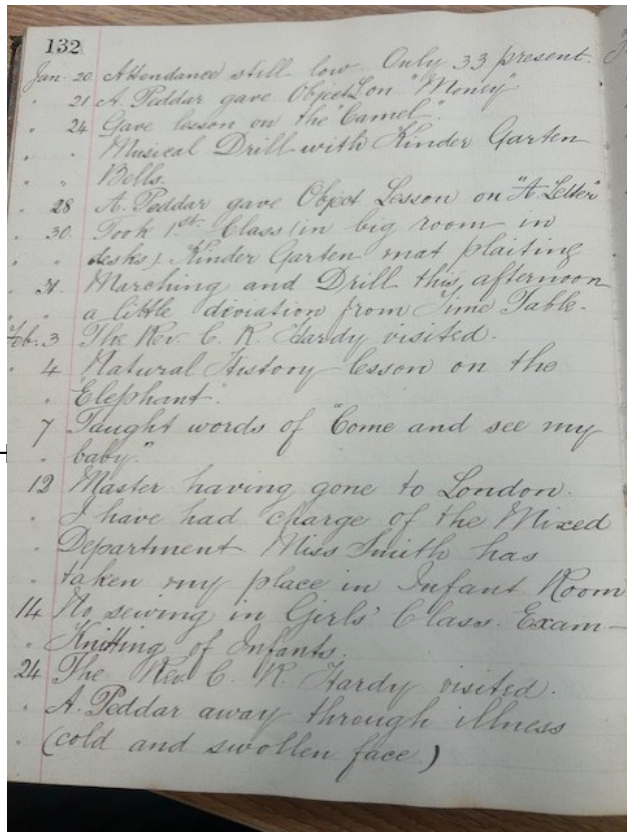 132
Jan 20 Attendance still low. Only 33 present.
" 21 A. Peddar gave Object L. on "Money"
" 24 Gave lesson on the "Camel".
" " Musical Drill with Kinder Garten
" " Bells.
" 28 A. Peddar gave Object Lesson on "A Letter"
" 30. Took 1st. Class (in big room in
" " desks) Kinder Garten mat plaiting
" 31 Marching and Drill this afternoon
" " a little deviation from Time Table.
Feb. 3 The Rev. C. R. Hardy visited.
" 4 Natural History lesson on the
" "Elephant".
7 Taught words of "Come and see my
" baby."
12 Master having gone to London.
" I have had charge of the Mixed
" Department Miss Smith has
" taken my place in Infant Room
14 No sewing in Girls' Class. Exam–
" Knitting of Infants.
24 The Rev C. R. Hardy visited.
" A. Peddar away through illness
" (cold and swollen face)